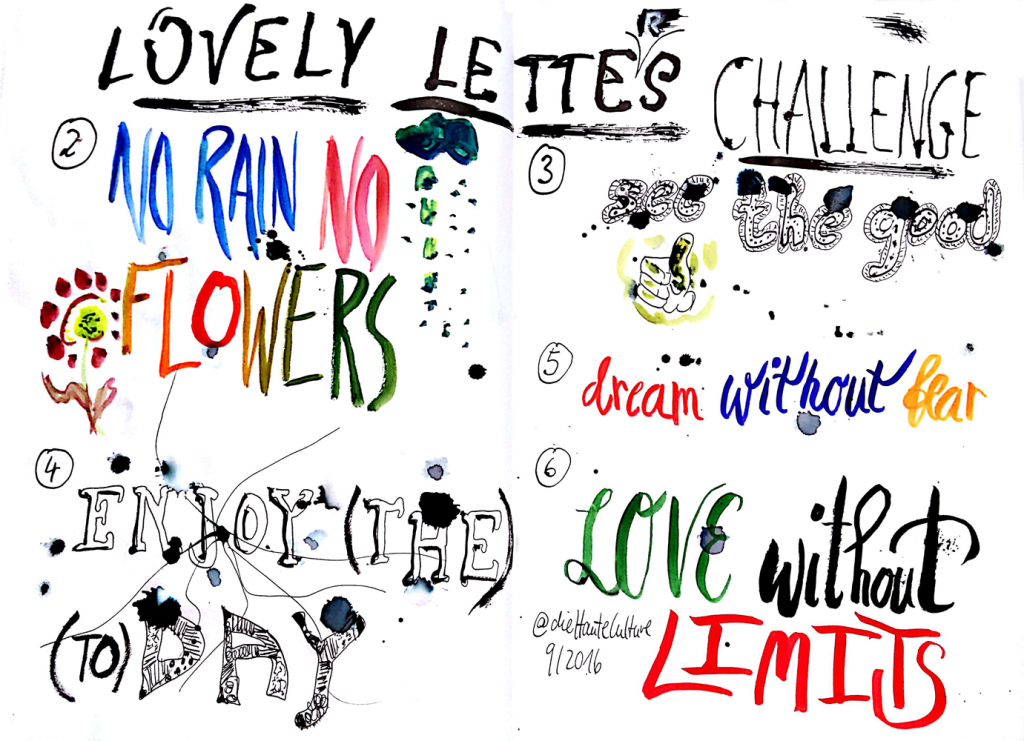 LOVELY LETTERS CHALLENGE
2 NO RAIN NO
FLOWERS
3 see the good
4 ENJOY (THE)
(TO) DAY
5 dream without fear
6 LOVE without
LIMITS
@dieHauteCulture
9/2016